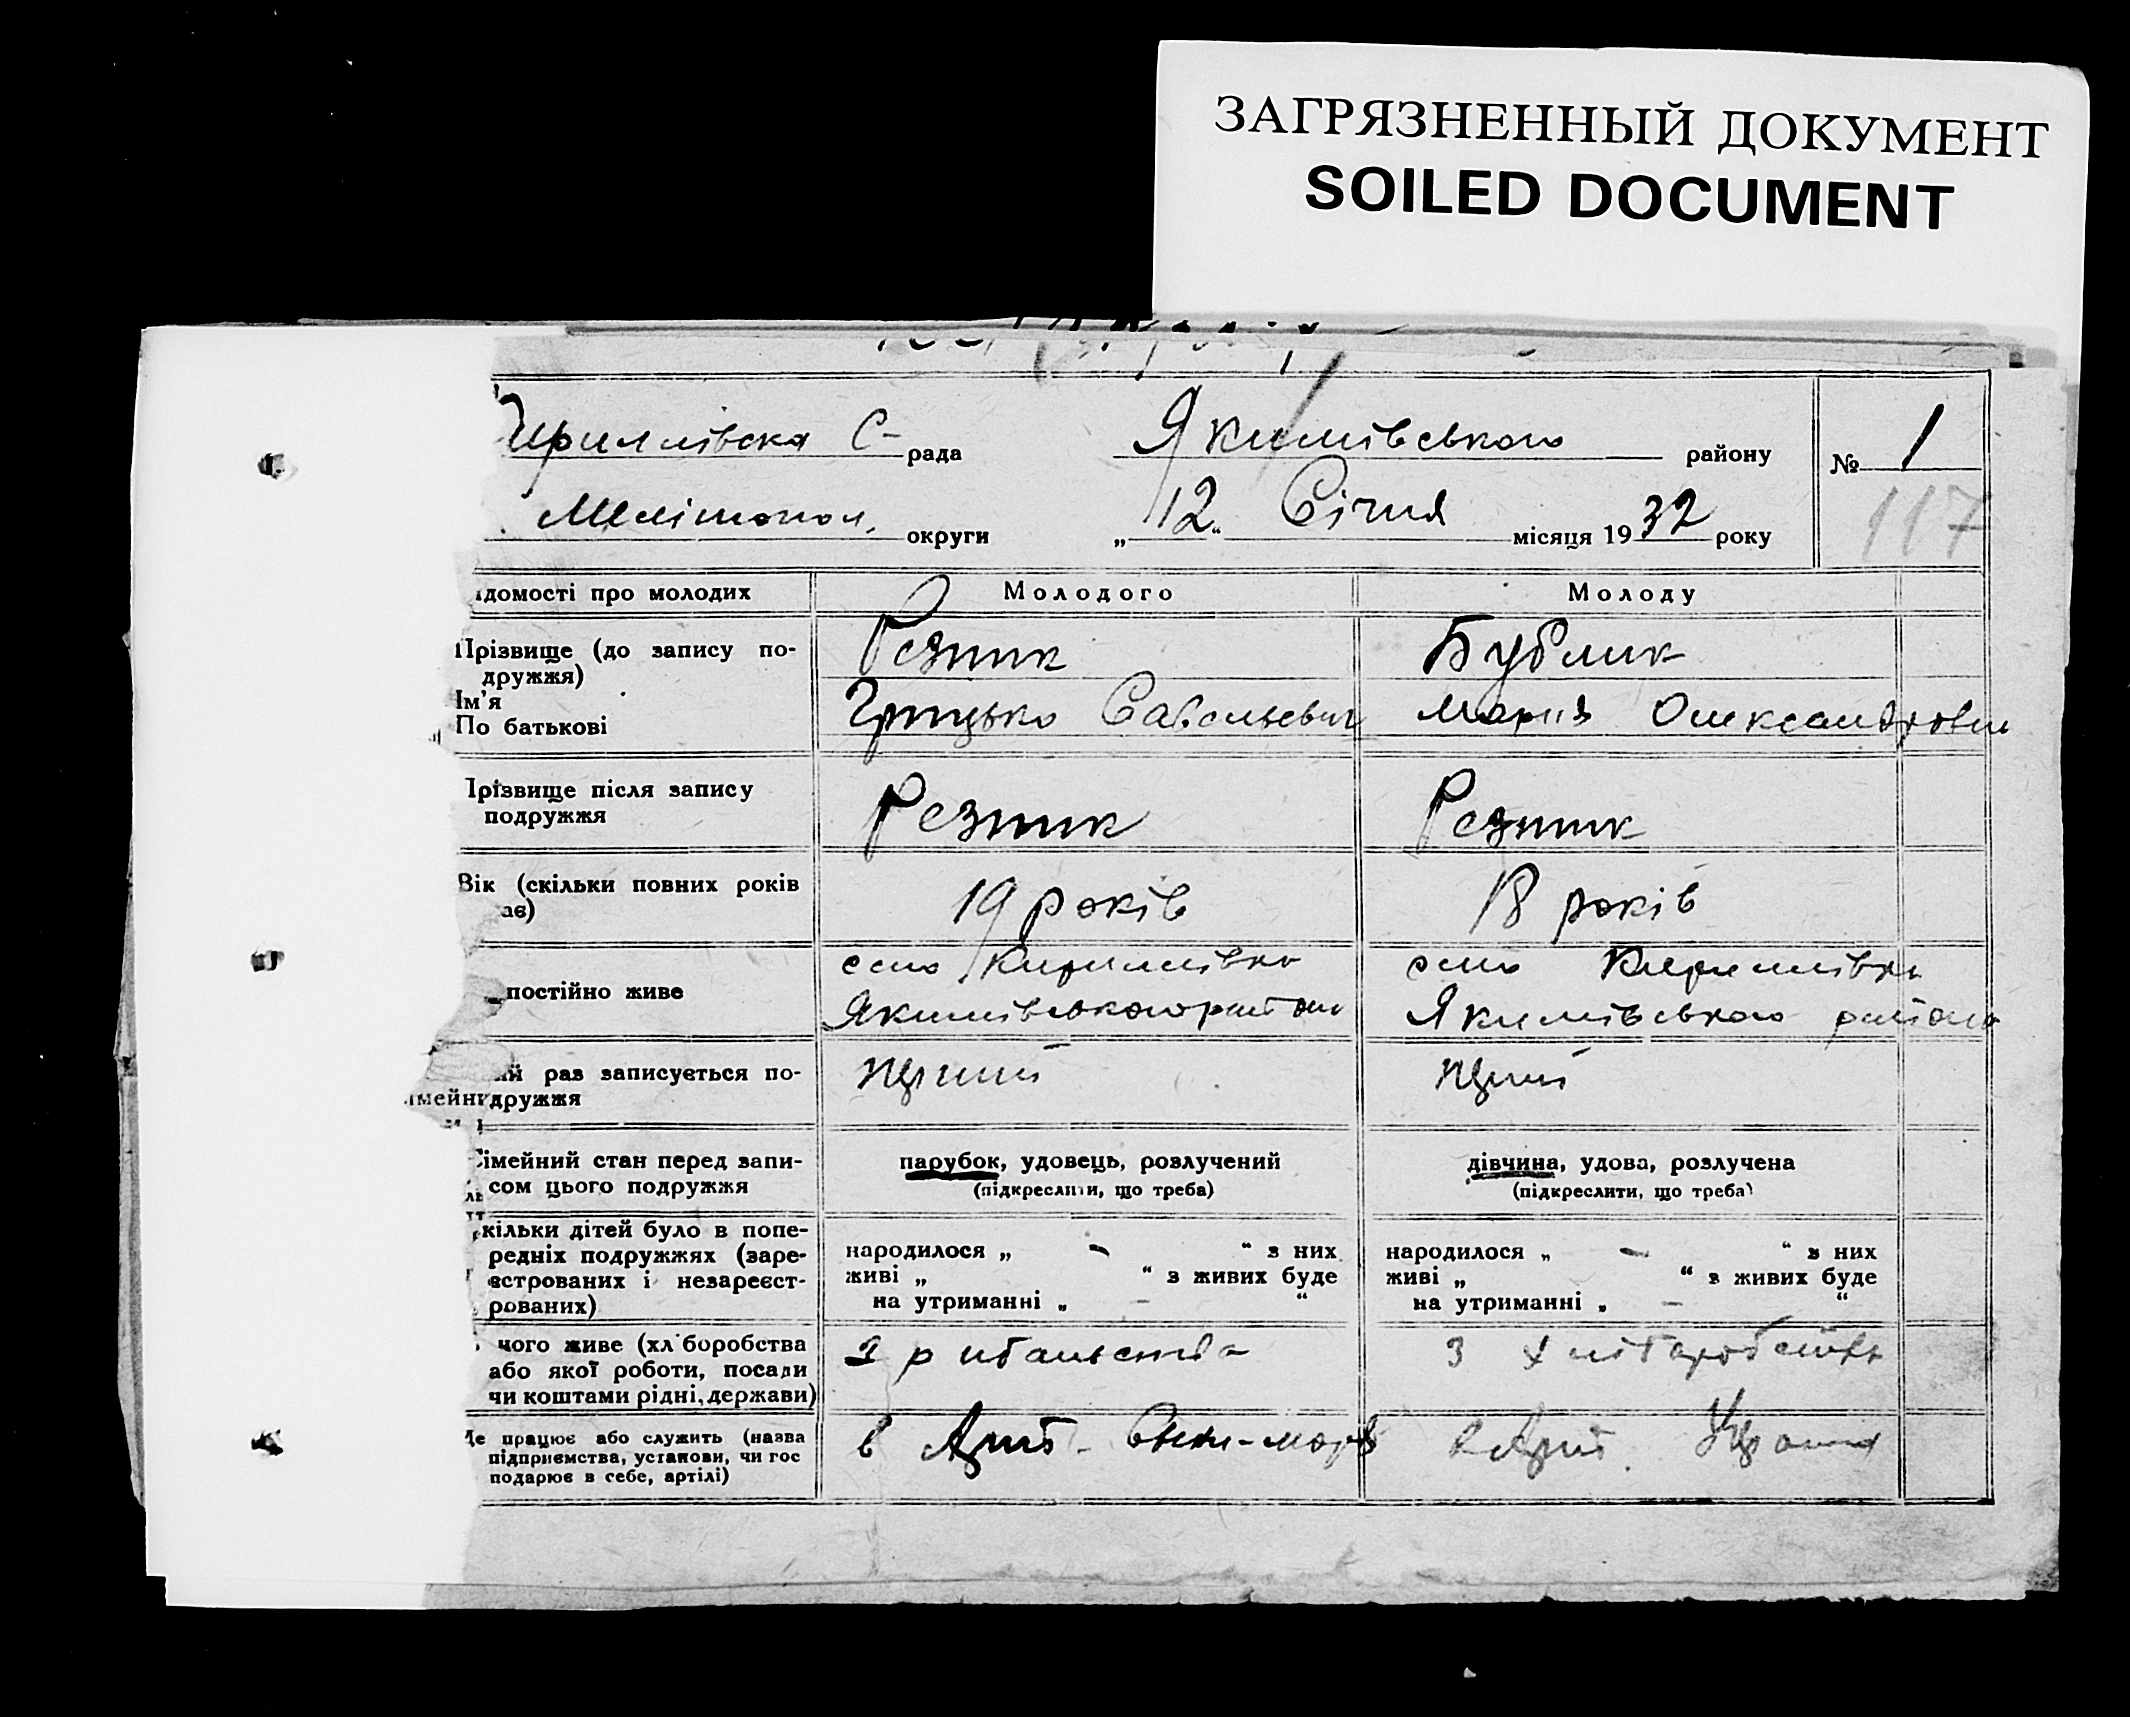 ЗАГРЯЗНЕННЫЙ ДОКУМЕНТ
SOILED DOCUMENT
Кириллівска С- рада Якимівського району № 1
Мелітопол. округи „12“ Січня місяця 1932 року 117
ідомості про молодих Молодого Молоду
Прізвище (до запису по-
дружжя) Резник Бублик
Ім'я
По батькові Грицько Савельевич Мария Олександровн
Прізвище після запису
подружжя Резник Резник
Вік (скільки повних років
ає) 19 років 18 років
постійно живе село Кирилівка село Кирилівка
Якимівського району Якимівського району
ий раз записується по-
дружжя перший перший
Сімейний стан перед запи- парубок, удовець, розлучений дівчина, удова, розлучена
сом цього подружжя (підкреслити, що треба) (підкреслити, що треба)
кільки дітей було в попе-
редніх подружжях (заре- народилося „ - “ з них народилося „ - “ з них
єстрованих і незареєст- живі „ “ з живих буде живі „ “ з живих буде
рованих) на утриманні „ - “ на утриманні „ - “
чого живе (хліборобства
або якої роботи, посади
чи коштами рідні, держави) з рибальства з хліборобства
Де працює або служить (назва
підприємства, установи, чи гос
подарює в себе, артілі) в Арт. в Арт.